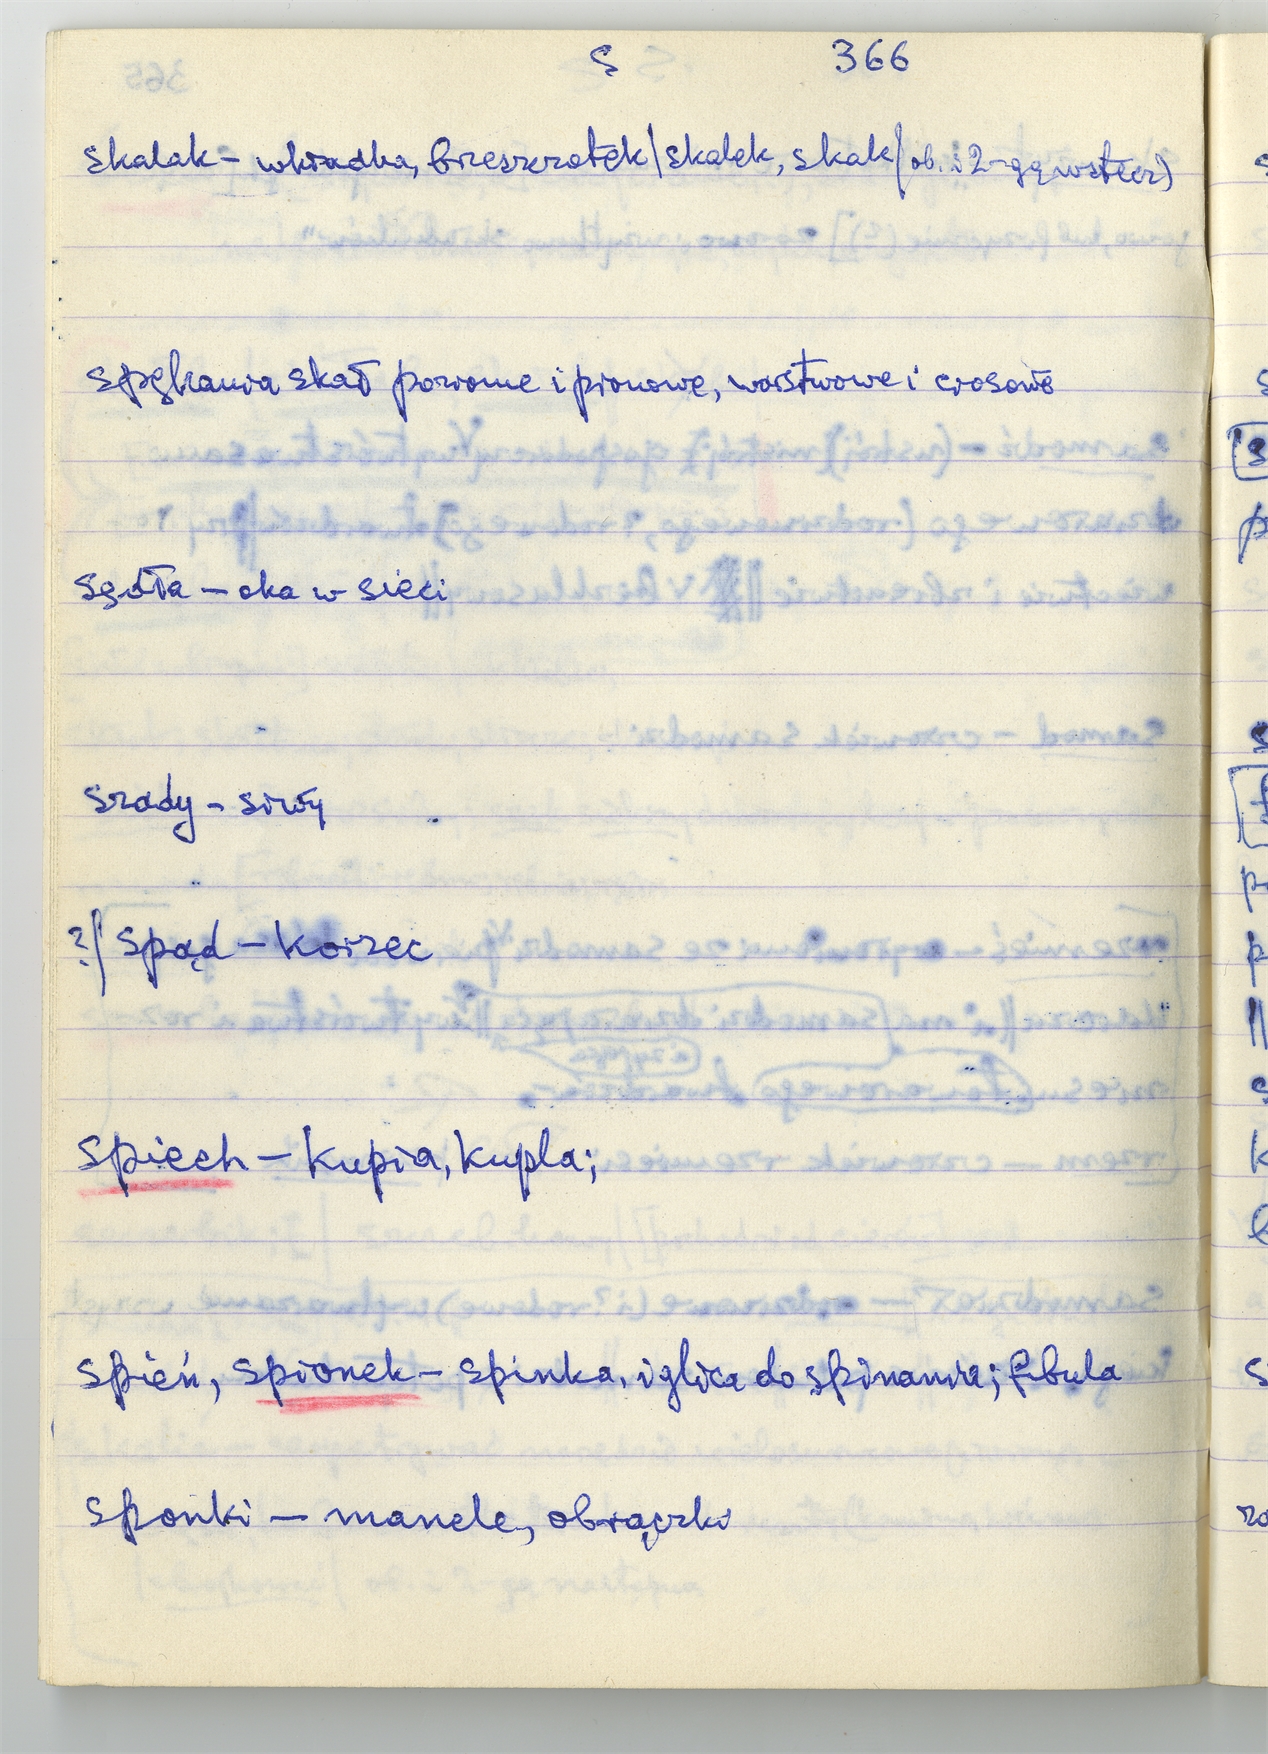 S 366
skalak – wkładka, brzeszczotek/skalek, skak/ob. i 2-gą wstecz)
spękania skał poziome i pionowe, warstwowe i ciosowe
– oka w sieci
szady – siwy
?/ spąd – korzec
spiech – kupia, kupla;
spień, spionek – spinka, iglica do spinania; fibula
sponki – manele, obrączki